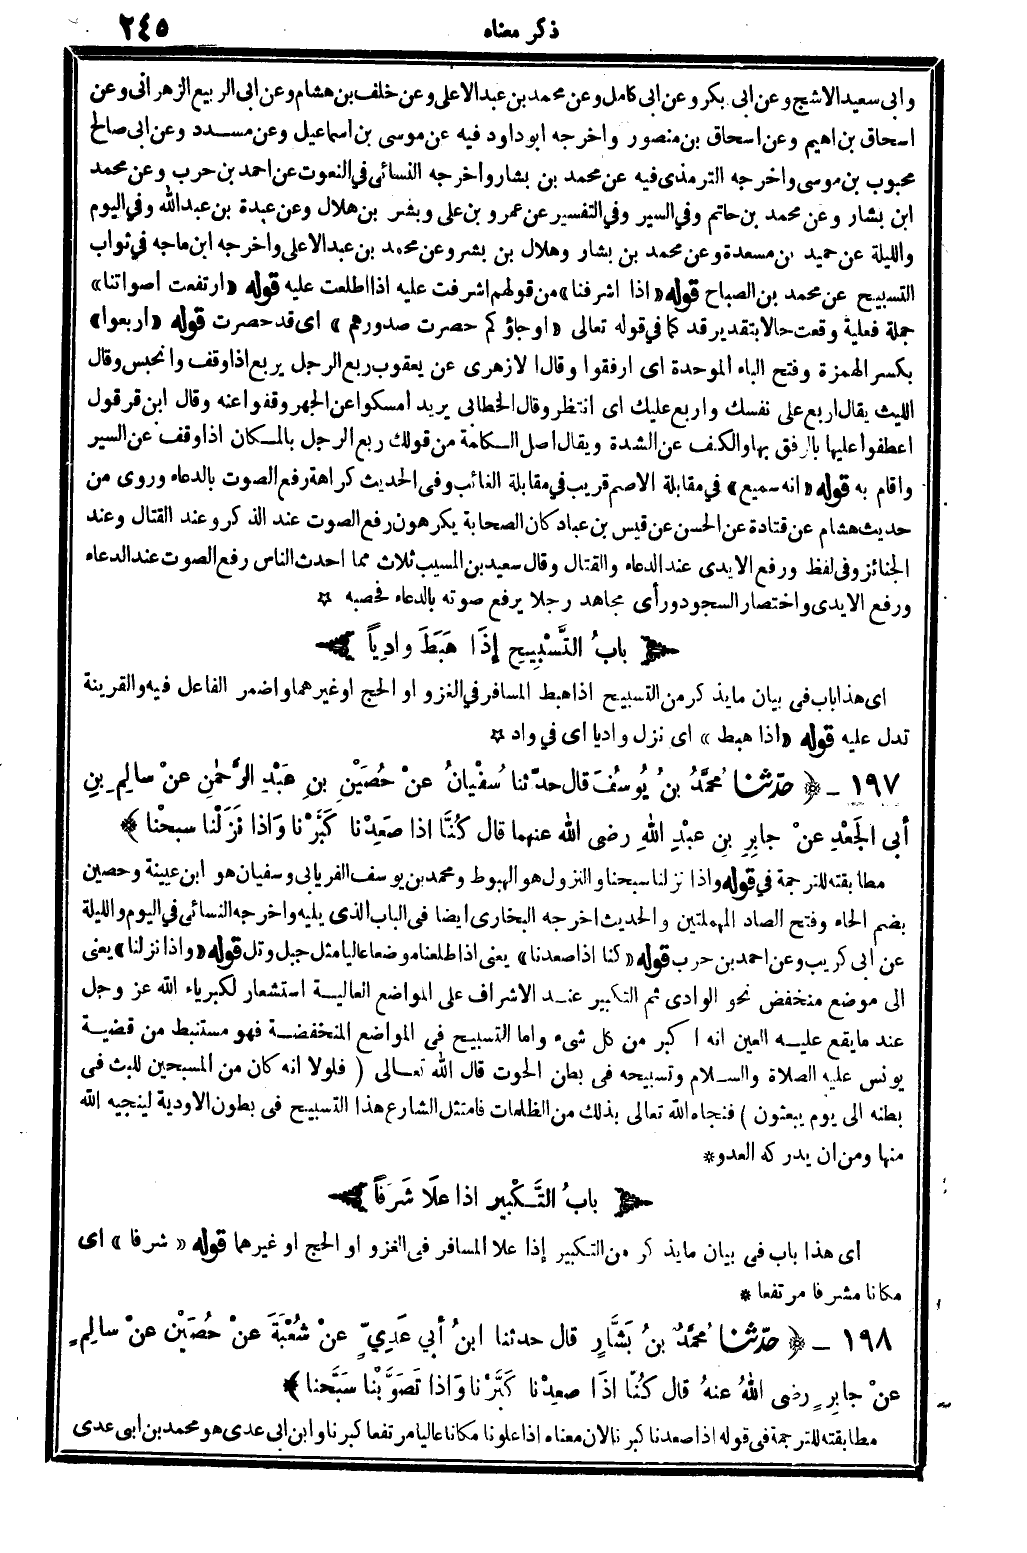 ذكر معناه ٢٤٥
وابى سعيد الاشج وعن ابى بكر وعن ابى كامل وعن محمد بن عبد الاعلى وعن خلف بن هشام وعن ابى الربيع الزهرانى وعن
اسحاق بن اهيم وعن اسحاق بن منصور واخرجه ابو داود فيه عن موسى بن اسماعيل وعن مسدد وعن ابى صالح
محبوب بن موسى واخرجه الترمذى فيه عن محمد بن بشار واخرجه النسائى فى النعوت عن احمد بن حرب وعن محمد
ابن بشار وعن محمد بن حاتم وفى السير وفى التفسير عن عمرو بن على وبشر بن هلال وعن عبدة بن عبد الله وفى اليوم
والليلة عن حميد بن مسعدة وعن محمد بن بشار وهلال بن بشر وعن محمد بن عبد الاعلى واخرجه ابن ماجه فى ثواب
التسبيح عن محمد بن الصباح قوله «اذا اشرفنا» من قولهم اشرفت عليه اذا اطلعت عليه قوله «ارتفعت اصواتنا»
جملة فعلية وقعت حالا بتقدير قد كما فى قوله تعالى «اوجاؤكم حصرت صدورهم» اى قد حصرت قوله «اربعوا»
بكسر الهمزة وفتح الباء الموحدة اى ارفقوا وقال الازهرى عن يعقوب ربع الرجل يربع اذا وقف وانحبس وقال
الليث يقال اربع على نفسك واربع عليك اى انتظر وقال الخطابى يريد امسكوا عن الجهر وقفوا عنه وقال ابن قرقول
اعطفوا عليها بالرفق بها والكف عن الشدة ويقال اصل الكلمة من قولك ربع الرجل بالمكان اذا وقف عن السير
واقام به قوله «انه سميع» فى مقابلة الاصم قريب فى مقابلة الغائب وفى الحديث كراهة رفع الصوت بالدعاء وروى من
حديث هشام عن قتادة عن الحسن عن قيس بن عباد كان الصحابة يكرهون رفع الصوت عند الذكر وعند القتال وعند
الجنائز وفى لفظ ورفع الايدى عند الدعاء والقتال وقال سعيد بن المسيب ثلاث مما احدث الناس رفع الصوت عند الدعاء
ورفع الايدى واختصار السجود ورأى مجاهد رجلا يرفع صوته بالدعاء فحصبه ☆
بابُ التَّسْبِيحِ إِذَا هَبَطَ وادِياً
اى هذا باب فى بيان ما يذكر من التسبيح اذا هبط المسافر فى الغزو او الحج او غيرهما واضمر الفاعل فيه والقرينة
تدل عليه قوله «اذا هبط» اى نزل واديا اى فى واد ☆
١٩٧ – ﴿ حدّثنا مُحَمَّدُ بنُ يُوسُفَ قال حدّثنا سُفْيانُ عنْ حُصَيْنِ بنِ عَبْدِ الرَّحْمٰنِ عنْ سالِمِ بنِ
أبى الجَعْدِ عنْ جابِرِ بنِ عبْدِ اللهِ رضى الله عنهما قال كُنَّا اذا صَعِدْنا كَبَّرْنا وَاذا نَزَلْنا سبحْنا ﴾
مطابقته للترجمة فى قوله واذا نزلنا سبحنا والنزول هو الهبوط ومحمد بن يوسف الفريابى وسفيان هو ابن عيينة وحصين
بضم الحاء وفتح الصاد المهملتين والحديث اخرجه البخارى ايضا فى الباب الذى يليه واخرجه النسائى فى اليوم والليلة
عن ابى كريب وعن احمد بن حرب قوله «كنا اذا صعدنا» يعنى اذا طلعنا موضعا عاليا مثل جبل وتل قوله «واذا نزلنا» يعنى
الى موضع منخفض نحو الوادى ثم التكبير عند الاشراف على المواضع العالية استشعار لكبرياء الله عز وجل
عند ما يقع عليه العين انه اكبر من كل شىء واما التسبيح فى المواضع المنخفضة فهو مستنبط من قضية
يونس عليه الصلاة والسلام وتسبيحه فى بطن الحوت قال الله تعالى ( فلولا انه كان من المسبحين للبث فى
بطنه الى يوم يبعثون ) فنجاه الله تعالى بذلك من الظلمات فامتثل الشارع هذا التسبيح فى بطون الاودية لينجيه الله
منها ومن ان يدركه العدو *
بابُ التَّكْبِيرِ اذا علَا شَرَفاً
اى هذا باب فى بيان ما يذكر من التكبير إذا علا المسافر فى الغزو او الحج او غيرهما قوله «شرفا» اى
مكانا مشرفا مرتفعا *
١٩٨ – ﴿ حدّثنا مُحَمَّدُ بنُ بَشَّارٍ قال حدثنا ابنُ أبي عَدِيٍّ عنْ شُعْبَةَ عنْ حُصَيْنٍ عنْ سالِمٍ
عنْ جابِرٍ رضى اللهُ عنهُ قال كُنَّا اذَا صعِدْنا كَبَّرْنا وَاذا تَصَوَّبْنا سَبَّحنا ﴾
مطابقته للترجمة فى قوله اذا صعدنا كبرنا لان معناه اذا علونا مكانا عاليا مرتفعا كبرنا وابن ابى عدى هو محمد بن ابى عدى